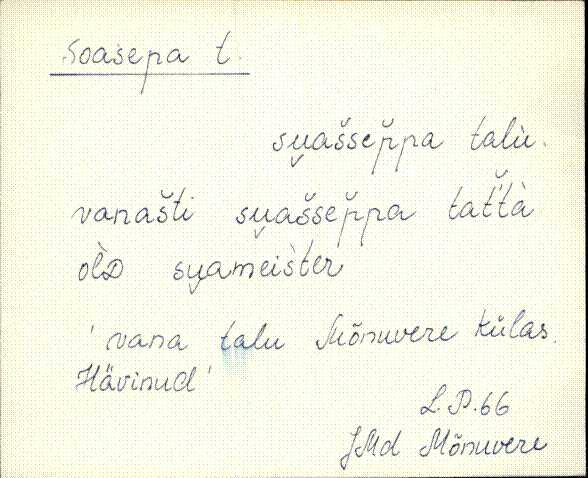 Soasepa t.
su̯aššep̆pa talù.
vanašti su̯aššep̆pa tat̆'tà
olD su̯ameišter
'vana talu Mõnuvere külas.
Hävinud'
L.P.66
JMd Mõnuvere